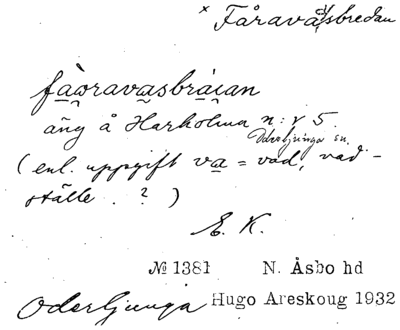 × Fåravadsbredan
fàw̥ravasbráɩan
äng å Harholma n:r 5.
Oderljunga sn.
(enl. uppgift va = vad, vad-
ställe. ?)
E. K.
№ 1381 N. Åsbo hd
Oderljunga Hugo Areskoug 1932